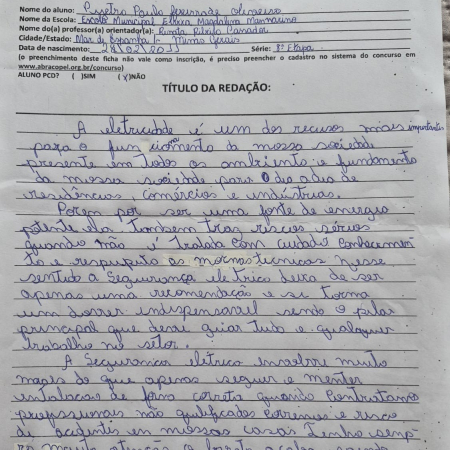 Nome do aluno: Paulo
Nome da Escola: Escola Municipal
Nome do(a) professor(a) orientador(a): Renata Ribeiro
Cidade/Estado: Mar de Espanha - Minas Gerais
Data de nascimento: 28/02/2011 Série: 8ª Etapa
(o preenchimento deste ficha não vale como inscrição, é preciso preencher o cadastro no sistema do concurso em
www.abracopel.org.br/concurso)
ALUNO PCD? ( )SIM (X)NÃO
TÍTULO DA REDAÇÃO:
A eletricidade é um dos recusos mais importantes
para o funcionamento da nossa sociedade
presente em todos os ambiente e fundamento
da nossa sociedade para o dia a dia de
residências comércios e indústrias.
Porém por ser uma fonte de energia
potente ela também traz riscos sérios
quando não é tratada com cuidado conhecimen
to e respeito as normas tecnicas nesse
sentido a Segurança eletrica deixa de ser
apenas uma recomentação e se torna
um dever indispensavel sendo o pilar
principal que deve guiar tudo e qualquer
trabalho no setor.
A Segurança eletrica envolve muito
mais do que apenas seguir e manter
de forma correta quando contratamos
profissionais não qualificados corremos o risco
de acidentes em nossas casas Tenho semp
re muita atenção